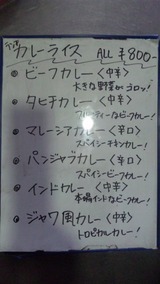 カレーライス ALL ¥800-
ビーフカレー〈中辛〉
大きな野菜がゴロッ!
タヒチカレー〈中辛〉
フルーティーなビーフカレー!
マレーシアカレー〈辛口〉
スパイシーチキンカレー!
パンジャブカレー〈辛口〉
スパイシービーフカレー!
インドカレー〈中辛〉
本場インドなビーフカレー!
ジャワ風カレー〈中辛〉
トロピカルカレー!